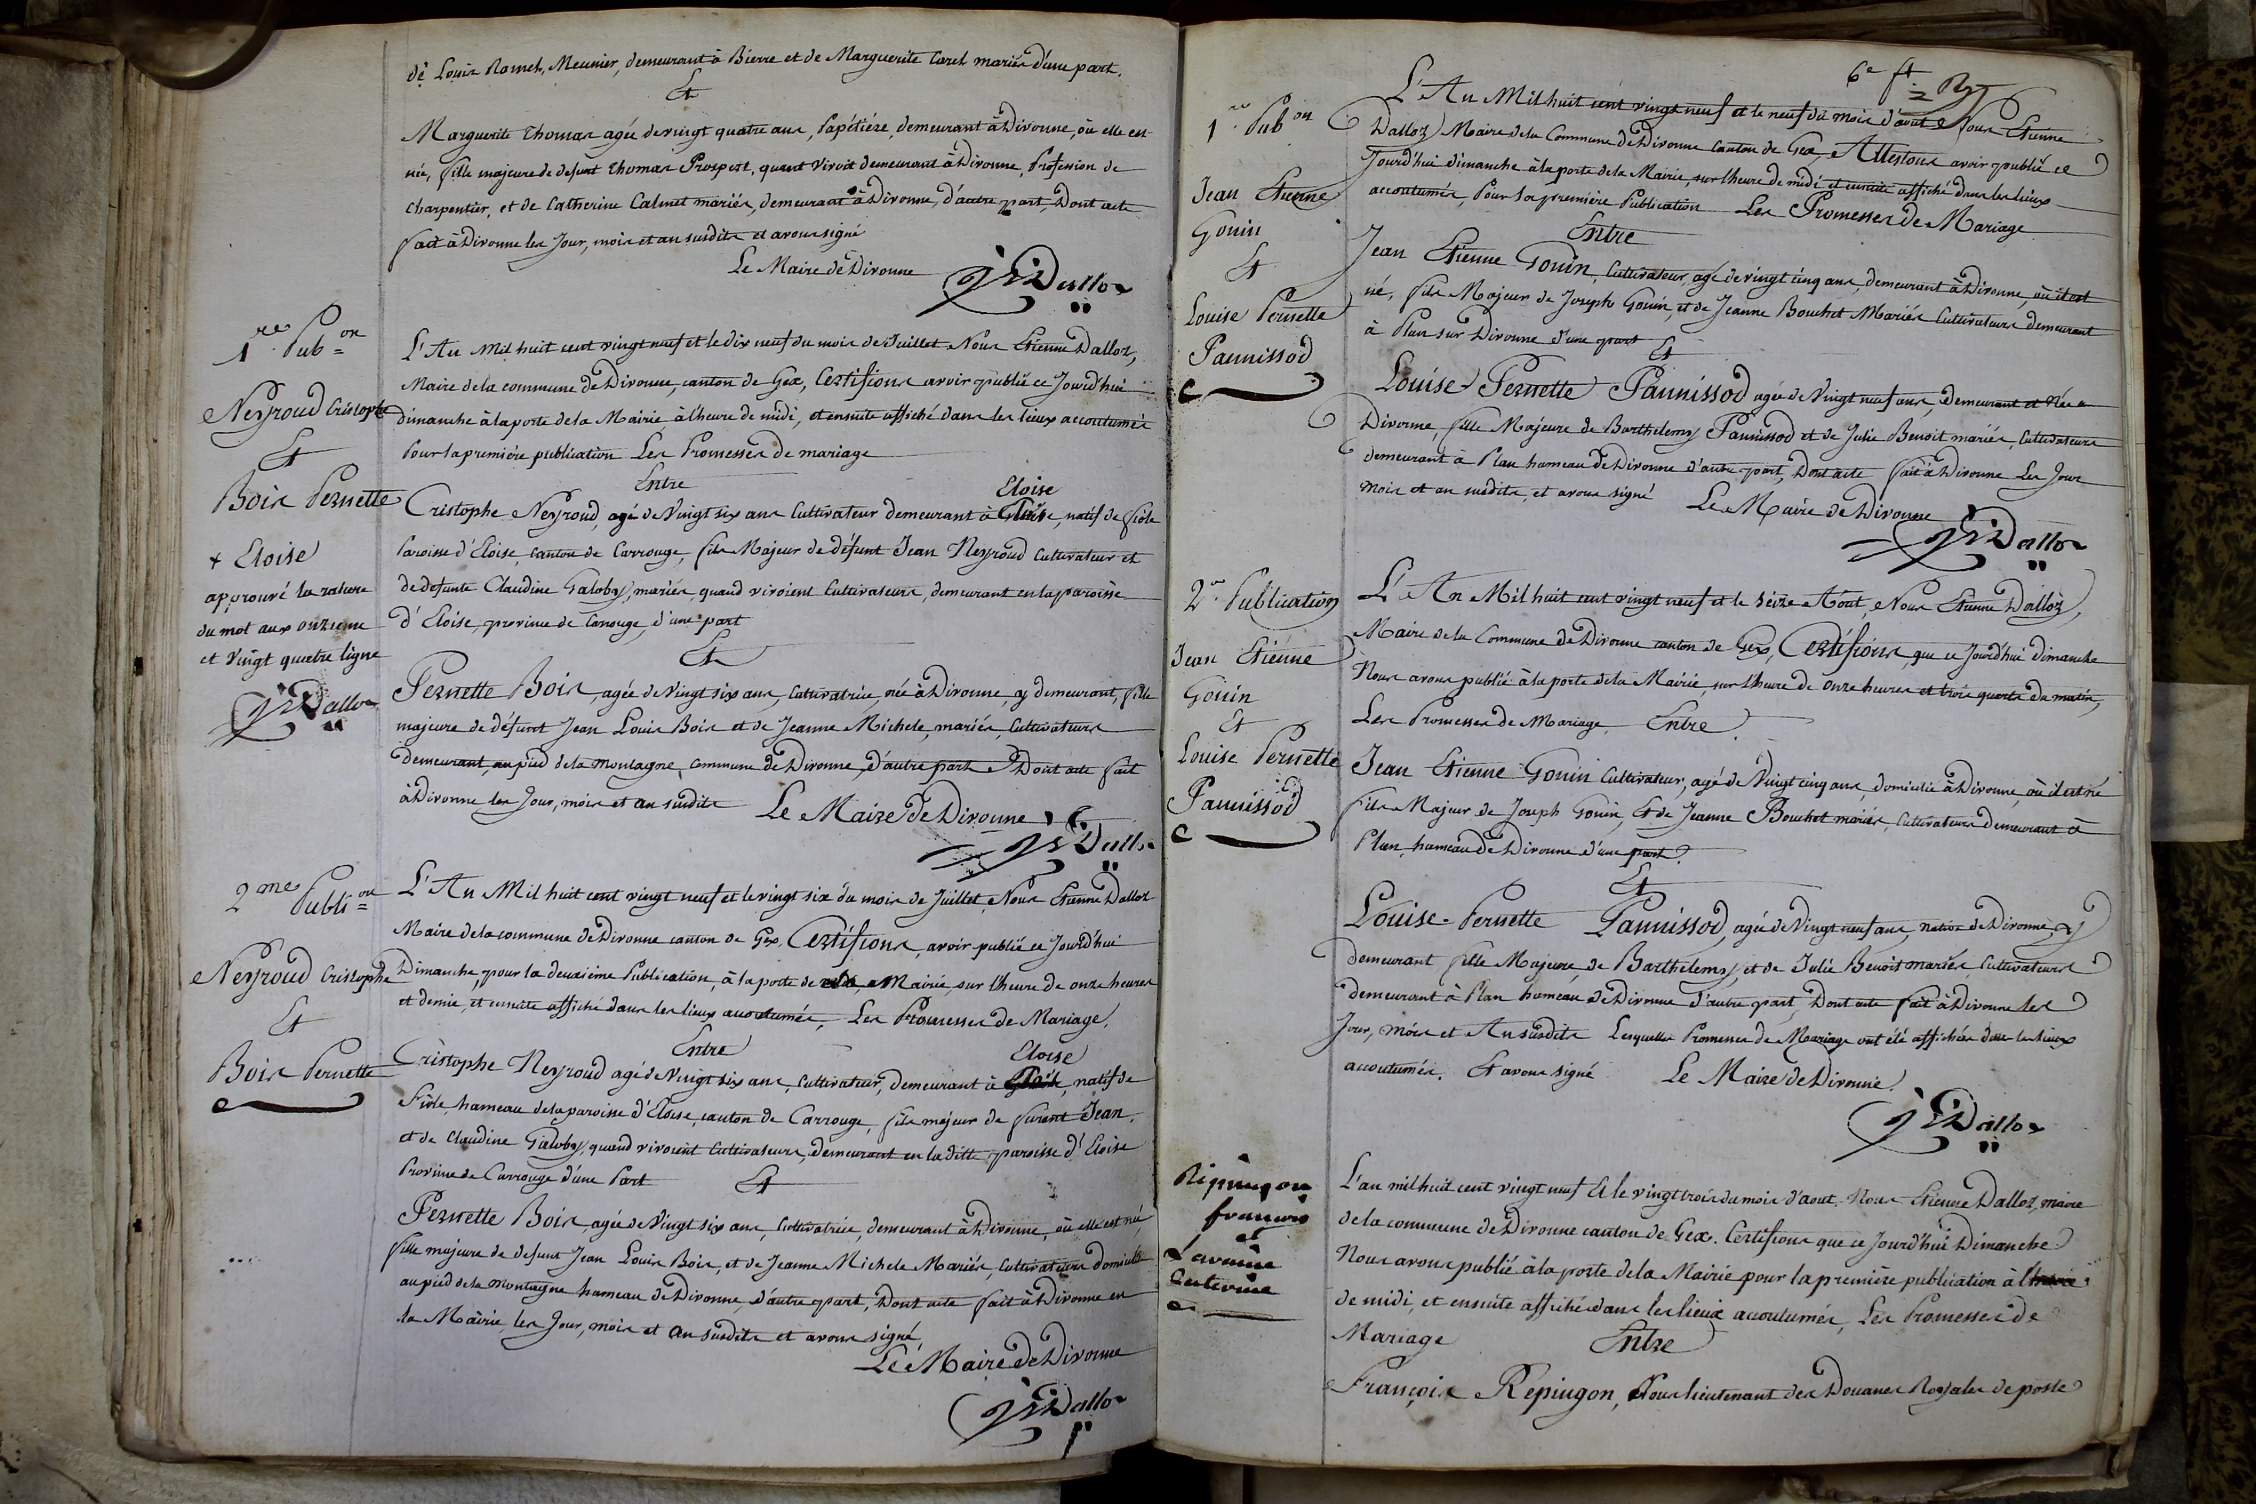 de Louis Ramel, Meunier, demeurant à Bierre et de Marguerite Carel mariés d'une part.
Et
Marguerite Thomas agée de vingt quatre ans, Papétiére, demeurant à Divonne, où elle est
née, fille majeure de defunt Thomas Prospert, quant vivoit demeurant à Divonne, Profession de
Charpentier, et de Catherine Calmet mariés, demeurant à Divonne, d'autre part, Dont acte
fait à Divonne les Jour, mois et an susdits et avons signé
Le Maire de Divonne
Dalloz
1re Pub=on
Neyroud Cristophe
Et
Bois Pernette
+ Eloise
approuvé la rature
du mot aux onzieme
et vingt quatre ligne
Dalloz
L'An Mil huit cent vingt neuf et le dix neuf du mois de Juillet Nous Etienne Dalloz,
Maire de la commune de Divonne, canton de Gex, Certifions avoir publié ce Jourd'hui
dimanche à la porte de la Mairie, à l'heure de midi, et ensuite affiché dans les lieux accoutumés
Pour la premiére publication Les Promesses de mariage
Entre
Eloise
Cristophe Neyroud, agé de Vingt six ans Cultivateur demeurant à, natif de Fiôle
Paroisse d'Eloise, canton de Carrouge, fils Majeur de défunt Jean Neyroud Cultivateur et
de defunte Claudine Galoby, mariés, quand vivoient Cultivateurs, demeurant en la paroisse
d'Eloise, province de Carrouge, d'une part
Et
Pernette Bois, agée de Vingt six ans, Cultivatrice, née à Divonne, y demeurant, fille
majeure de défunt Jean Louis Bois et de Jeanne Michele, mariés, Cultivateurs
demeurant, au pied de la montagne, commune de Divonne, d'autre part Dont acte fait
à Divonne les Jour, mois et an susdits Le Maire de Divonne
Dalloz
2me Publi=on
Neyroud Cristophe
Et
Bois Pernette
L'An Mil huit cent vingt neuf et le vingt six du mois de Juillet, Nous Etienne Dalloz
Maire de la commune de Divonne canton de Gex, Certifions, avoir publié ce Jourd'hui
Dimanche, pour la deuxième Publication, à la porte de la Mairie, sur l'heure de onze heures
et demie, et ensuite affiché dans les lieux accoutumés, Les Promesses de Mariage,
Entre
Eloise
Cristophe Neyroud agé de Vingt six ans, Cultivateur, demeurant à, natif de
Fiôle, hameau de la paroisse d'Eloise, canton de Carrouge, fils majeur de furent Jean,
et de Claudine Galoby, quand vivoient Cultivateurs, demeurant en la ditte paroisse d'Eloise
Province de Carrouge d'une Part Et
Pernette Bois, agée de Vingt six ans, Cultivatrice, demeurant à Divonne, où elle est née
fille majeure de defunt Jean Louis Bois, et de Jeanne Michele Mariés, Cultivateurs domiciliés
au pied de la montagne hameau de Divonne, d'autre part, Dont acte fait à Divonne en
la Mairie, les Jour, mois et an susdits et avons signé,
Le Maire de Divonne
Dalloz
6e ft
1re Pub on
Jean Etienne
Gouin
Et
Louise Pernette
Pannissod
L'An Mil huit cent vingt neuf et le neuf du mois d'aout Nous Etienne
Dalloz Maire de la Commune de Divonne Canton de Gex, Attestons avoir publié ce
Jourd'hui dimanche à la porte de la Mairie, sur l'heure de midi et ensuite affiché dans les lieux
accoutumés, Pour la premiére Publication Les Promesses de Mariage
Entre
Jean Etienne Gouin, Cultivateur, agé de vingt cinq ans, demeurant à Divonne, où il est
né, fils Majeur de Joseph Gouin, et de Jeanne Bouchet Mariés Cultivateurs demeurant
à Plan sur Divonne d'une part
Et
Louise Pernette Pannissod agée de Vingt neuf ans, demeurant et Née a
Divonne, fille Majeure de Barthelemy Pannissod et de Julie Benoit mariés, Cultivateurs
demeurant à Plan hameau de Divonne d'autre part, Dont acte fait à Divonne Les Jour
Mois et an susdits, et avons signé Le Maire de Divonne
Dalloz
2e Publication
Jean Etienne
Gouin
Et
Louise Pernette
Pannissod
L'An Mil huit cent vingt neuf et le Seize Aout, Nous Etienne Dalloz,
Maire de la Commune de Divonne canton de Gex, Certifions, que ce Jourd'hui dimanche
Nous avons publié à la porte de la Mairie, sur l'heure de onze heures et trois quarts du matin,
Les Promesses de Mariage, Entre
Jean Etienne Gouin Cultivateur, agé de Vingt cinq ans, domicilié à Divonne, où il est né
fils Majeur de Joseph Gouin, Et de Jeanne Bouchet mariés, Cultivateurs demeurant à
Plan, hameau de Divonne d'une part.
Et
Louise-Pernette Pannissod, agée de Vingt neuf ans, native de Divonne, y
demeurant fille Majeure de Barthelemy, et de Julie Benoit mariés Cultivateurs
demeurant à Plan hameau de Divonne d'autre part, Dont acte fait à Divonne les
Jour, mois et An susdits Lesquelles Promesses de Mariage ont été affichées dans les lieux
accoutumés. Et avons signé Le Maire de Divonne.
Dalloz
Répingon
francois
et
Caterine
L'an mil huit cent vingt neuf Et le vingt trois du mois d'aout. Nous Etienne Dalloz, maire
de la commune de Divonne canton de Gex. Certifions que ce Jourd'hui Dimanche
Nous avons publié à la porte de la Mairie pour la premiére publication à l'heure
de midi, et ensuite affiché dans les lieux accoutumés, Les Promesses de
Mariage Entre
François Répingon, Sous lieutenant des Douanes Royales de poste